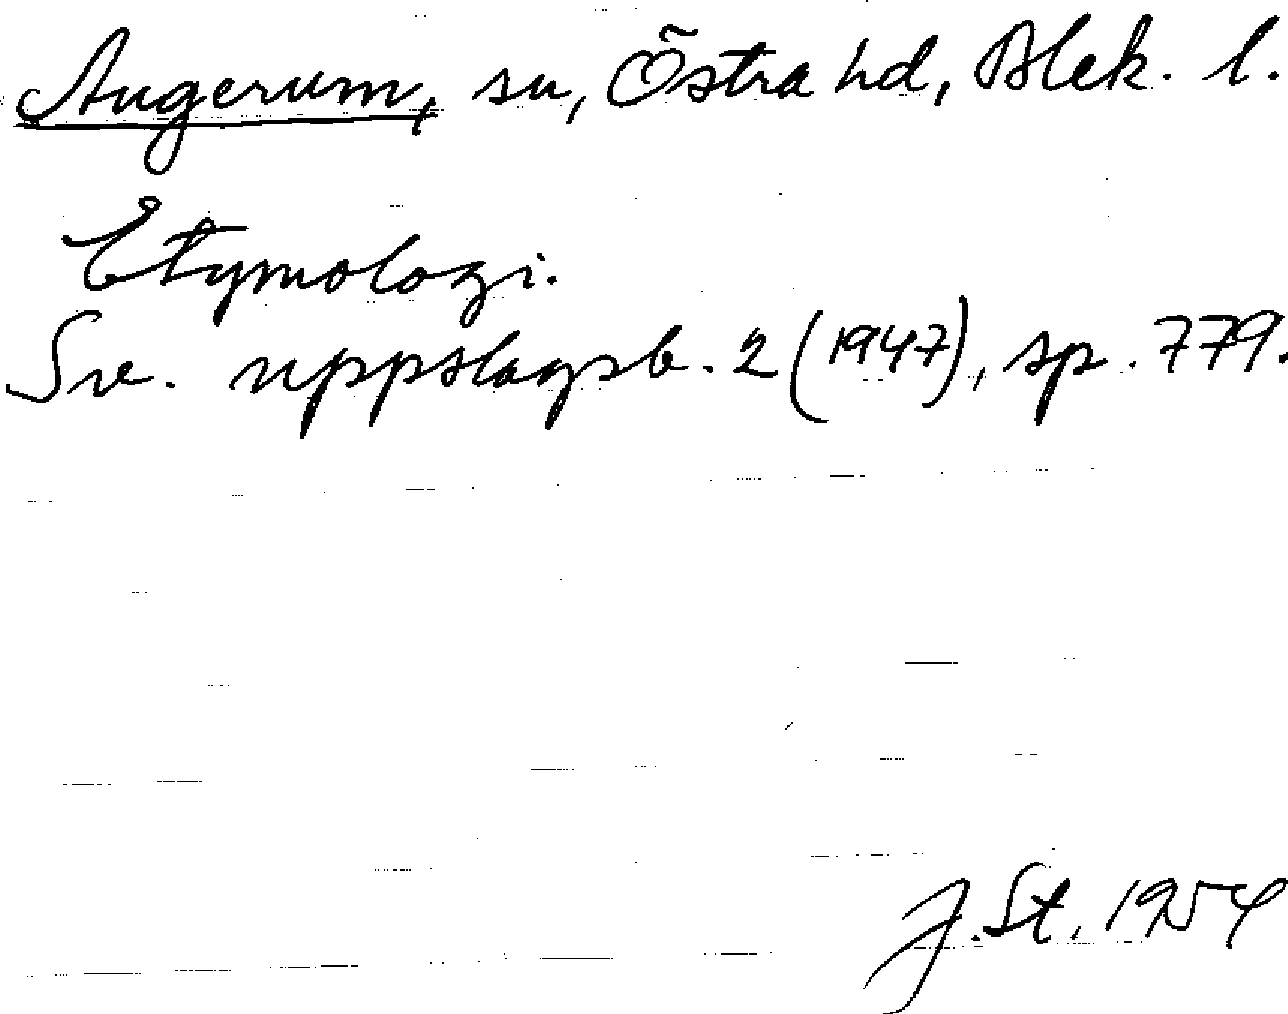 Augerum, sn, Östra hd, Blek. l.
Etymologi.
Sv. uppslagsb. 2 (1947), sp. 779.
J. St. 1954